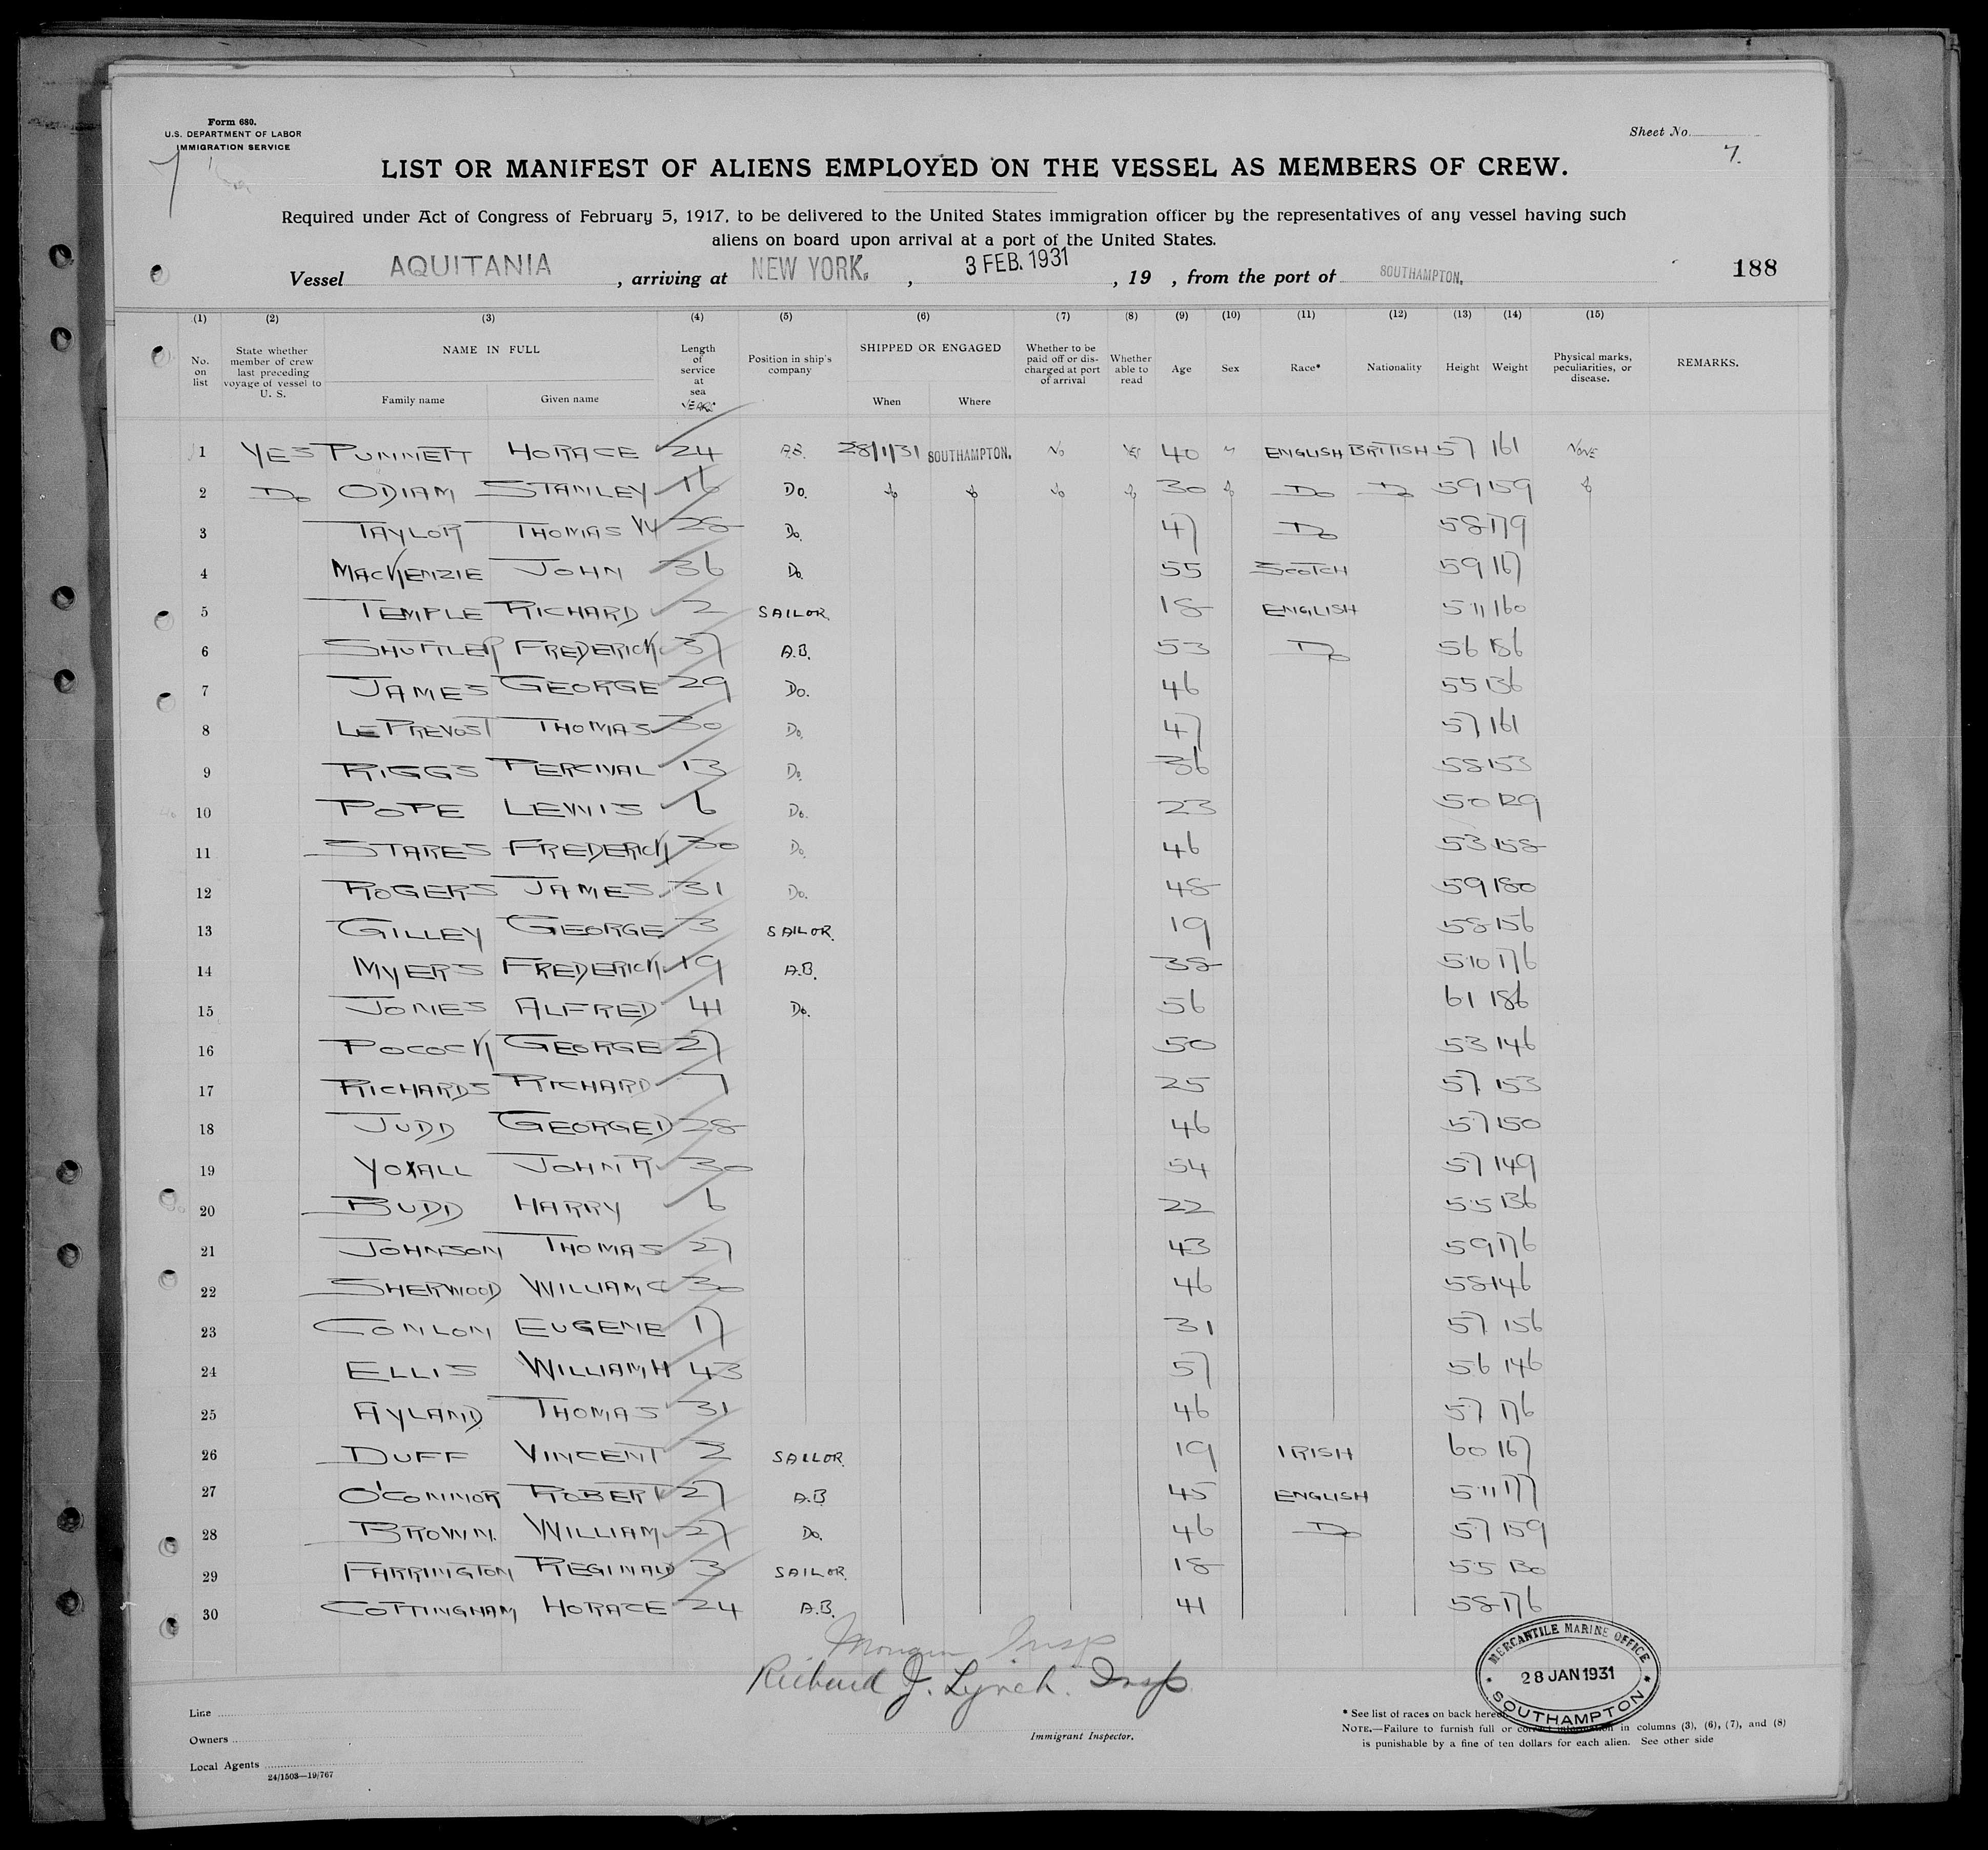 Form 680.
U.S. DEPARTMENT OF LABOR
IMMIGRATION SERVICE
Sheet No.
7
7.
LIST OR MANIFEST OF ALIENS EMPLOYED ON THE VESSEL AS MEMBERS OF CREW.
Required under Act of Congress of February 5, 1917, to be delivered to the United States immigration officer by the representatives of any vessel having such
aliens on board upon arrival at a port of the United States.
Vessel AQUITANIA , arriving at NEW YORK. , 3 FEB. 1931 , 19 , from the port of SOUTHAMPTON. 188
(1) (2) (3) (4) (5) (6) (7) (8) (9) (10) (11) (12) (13) (14) (15)
No. on list State whether member of crew last preceding voyage of vessel to U. S. NAME IN FULL Family name Given name Length of service at sea YEARS Position in ship's company SHIPPED OR ENGAGED When Where Whether to be paid off or discharged at port of arrival Whether able to read Age Sex Race* Nationality Height Weight Physical marks, peculiarities, or disease. REMARKS.
1 YES PUNNETT HORACE 24 A.B. 28/1/31 SOUTHAMPTON. No YES 40 M ENGLISH BRITISH 57 161 NONE
2 Do ODIAM STANLEY 16 Do. Do Do Do Do 30 Do Do Do 59 159 Do
3 TAYLOR THOMAS W 28 Do. 47 Do 58 179
4 MACKENZIE JOHN 36 Do. 55 SCOTCH 59 167
5 TEMPLE RICHARD 2 SAILOR. 18 ENGLISH 5·11 160
6 SHUTTLER FREDERICK 37 A.B. 53 Do 56 186
7 JAMES GEORGE 29 Do. 46 55 136
8 LE PREVOST THOMAS 30 Do. 47 57 161
9 RIGGS PERCIVAL 13 Do. 36 58 153
10 POPE LEWIS 6 Do. 23 50 129
11 STARES FREDERICK 30 Do. 46 53 158
12 ROGERS JAMES 31 Do. 48 59 180
13 GILLEY GEORGE 3 SAILOR. 19 58 156
14 MYERS FREDERICK 19 A.B. 38 5·10 176
15 JONES ALFRED 41 Do. 56 61 186
16 POCOCK GEORGE 27 50 53 146
17 RICHARDS RICHARD 7 25 57 153
18 JUDD GEORGE D 28 46 57 150
19 YOXALL JOHN R 30 54 57 149
20 BUDD HARRY 6 22 55 136
21 JOHNSON THOMAS 27 43 59 176
22 SHERWOOD WILLIAM C 30 46 58 146
23 CONLON EUGENE 17 31 57 156
24 ELLIS WILLIAM H 43 57 56 146
25 AYLAND THOMAS 31 46 57 176
26 DUFF VINCENT 2 SAILOR. 19 IRISH 60 167
27 O'CONNOR ROBERT 27 A.B 45 ENGLISH 5·11 177
28 BROWN. WILLIAM 27 Do. 46 Do 57 159
29 FARRINGTON REGINALD 3 SAILOR. 18 55 130
30 COTTINGHAM HORACE 24 A.B. 41 58 176
Insp
Richard J. Lynch. Insp
Immigrant Inspector.
MERCANTILE MARINE OFFICE
28 JAN 1931
SOUTHAMPTON
Line
Owners
Local Agents
24/1503—19/767
* See list of races on back hereof.
NOTE.—Failure to furnish full or correct information in columns (3), (6), (7), and (8)
is punishable by a fine of ten dollars for each alien. See other side